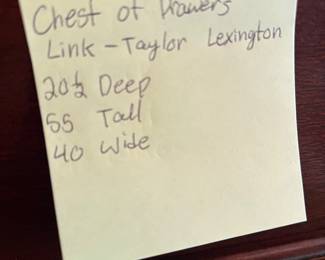 Chest of Drawers
Link - Taylor Lexington
20 1/2 Deep
55 Tall
40 Wide